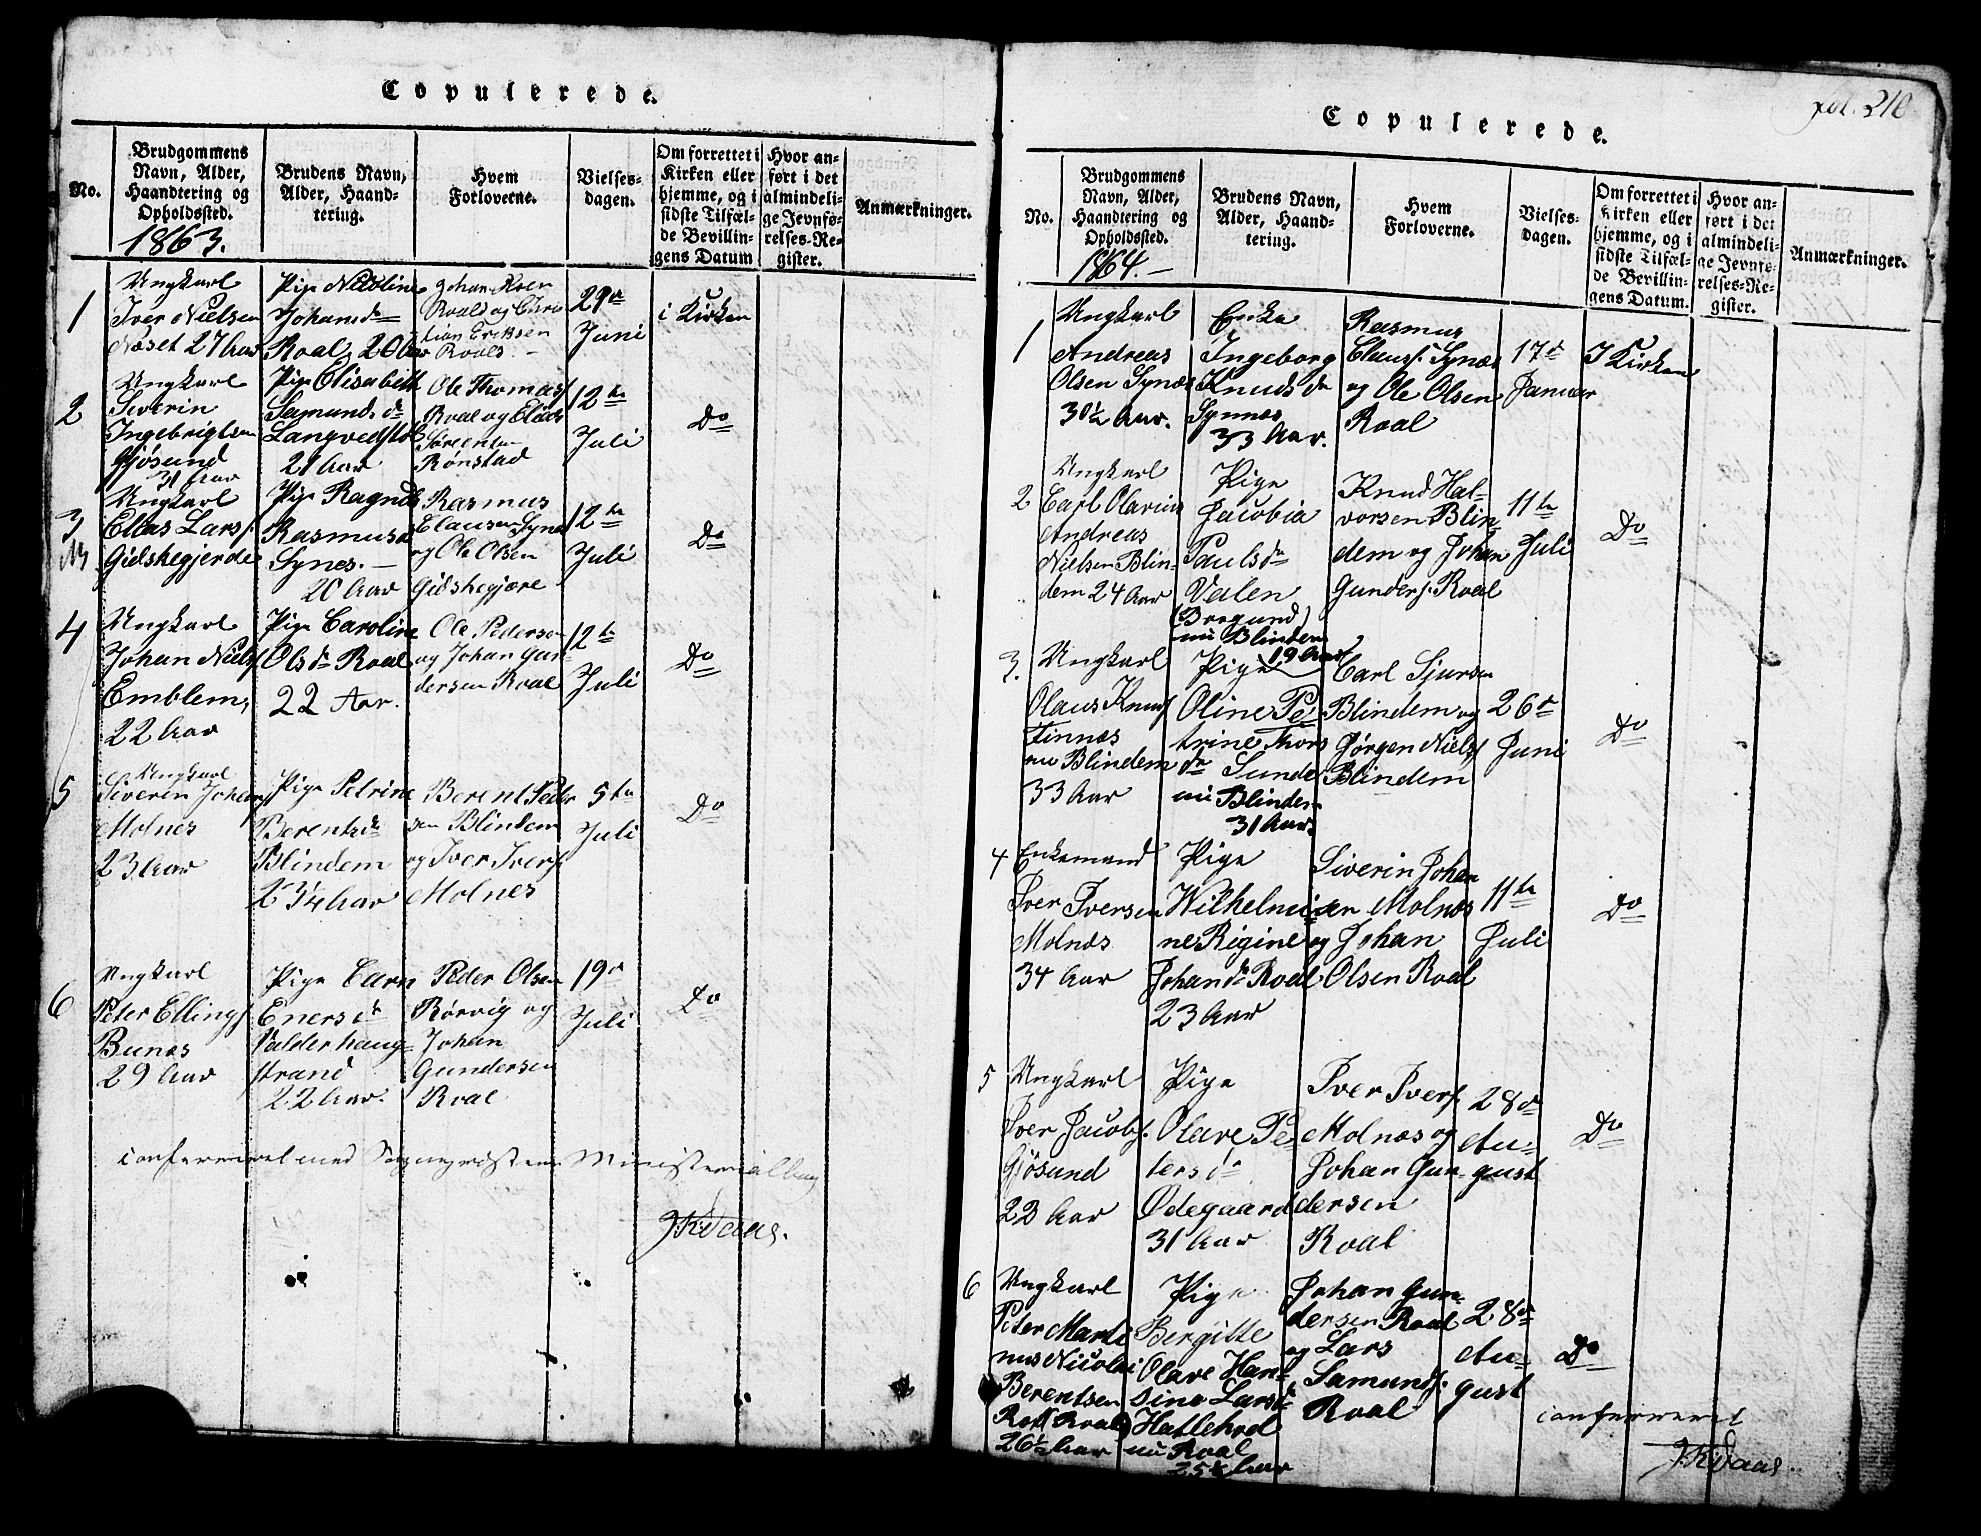 Copulerede.
No.
Brudgommens
Navn, Alder,
Haandtering og
Opholdssted.
1863.
Brudens Navn,
Alder, Haand-
tering.
Hvem
Forloverne.
Vielses-
dagen.
Om forrettet i
Kirken eller
hjemme, og i
sidste Tilfæl-
de Bevillin-
gens Datum
Hvor an-
ført i det
almindeli-
ge Jevnfø-
relses-Re-
gister.
Anmærkninger.
1
Ungkarl
Iver Nielsen
Næset 27 Aar
Pige Nicoline
Johansd
Roal, 20 Aar
Johan
Roald og Chris
tian Eriksen
Roald.
29de
Juni
i Kirken
2
Ungkarl
Siverin
Ingebrigtsen
Gjøsund
31 Aar
Pige Elisabeth
Samunds dr
21 Aar
Ole Thomas
Roal og Elias
Sørensen
Rønstad
12te
Juli
Do
3
Ungkarl
Elias Larss.
Gidskegjerde
Pige Ragnild
Rasmusd
Synes.
20 Aar
Rasmus
Clausen Synes
og Ole Olsen
Gidskegjære
12te
Juli
Do
4
Ungkarl
Johan Niels
Emblem,
22 Aar
Pige Caroline
Olsdr Roal
22 Aar.
Ole Pedersen
og Johan Gun
dersen Roal
12te
Juli
Do
5
Ungkarl
Siverin Johans
Molnes
23 Aar
Pige Petrine
Berentsdr
Blindem
23¼ Aar
Berent Peder
sen Blindem
og Iver Ivers
Molnes
5te
Juli
Do
6
Ungkarl
Peter Ellings
Bunæs
29 Aar
Pige Carn
Enersdr
Valderhaug-
strand
22 Aar.
Peder Olsen
Rørvig og
Johan
Gundersen
Roal
19de
Juli
Do
confereret med Sognepræstens Ministerialbog
J.K. Daae.
fol. 210
Copulerede.
No.
Brudgommens
Navn, Alder,
Haandtering og
Opholdssted.
1864.
Brudens Navn,
Alder, Haand-
tering.
Hvem
Forloverne.
Vielses-
dagen.
Om forrettet i
Kirken eller
hjemme, og i
sidste Tilfæl-
de Bevillin-
gens Datum.
Hvor an-
ført i det
almindeli-
ge Jevnfø-
relses-Re-
gister.
Anmærkninger.
1
Ungkarl
Andreas
Olsen Synæs
30½ Aar.
Enke
Ingeborg
Knuds dr
Synnæs
33 Aar.
Rasmus
Clauss. Synæs
og Ole Olsen
Roal
17de
Januar
I Kirken
2
Ungkarl
Carl Olarius
Andreas
Nielsen Blin-
dem 24 Aar
Pige
Jacobia
Paulsdr
Valen
(Borgund)
nu Blindem
19 Aar
Knud Hal-
vorsen Blin-
dem og Johan
Gunders. Roal
11te
Juli
Do
3.
Ungkarl
Olaus Knuds
Finnæs
nu Blindem
33 Aar
Pige
Oline Pe
trine Thors
dr Sunde
nu Blindem
31 Aar.
Carl Sjursen
Blindem og
Jørgen Niels
Blindem
26de
Juni
Do
4
Enkemand
Iver Iversen
Molnæs
34 Aar
Pige
Wilhelmi
ne Rigine
Johansdr Roal
23 Aar
Siverin Johan
sen Molnæs
og Johan
Olsen Roal
11te
Juli
Do
5
Ungkarl
Iver Jacobs.
Gjøsund
22 Aar
Pige
Olave Pe
ters dr
Ødegaard
31 Aar
Iver Ivers.
Molnæs og
Johan Gun-
dersen
Roal
28de
Au-
gust
Do
6
Ungkarl
Peter Marti
nus Nicolai
Berentsen
Roal
26½ Aar
Pige
Bergitte
Olave Han-
sine Larsdr
Hatlehoel
nu Roal
Johan Gun-
dersen Roal
og Lars
Samunds.
Roal
28de
Au-
gust
Do
confereret
J.K. Daae.